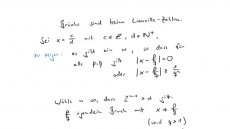 Brüche sind keine Liouville-Zahlen.
Sei x = c/d mit c ∈ ℤ, d ∈ ℕ⁺.
Zu zeigen: es gibt ein n, so dass für
alle p, q gilt |x - p/q| = 0
oder |x - p/q| ≥ 1/qⁿ
Wähle n so, dass 2ⁿ⁻¹ > d gilt.
p/q irgendein Bruch mit x ≠ p/q
(und q > 1)